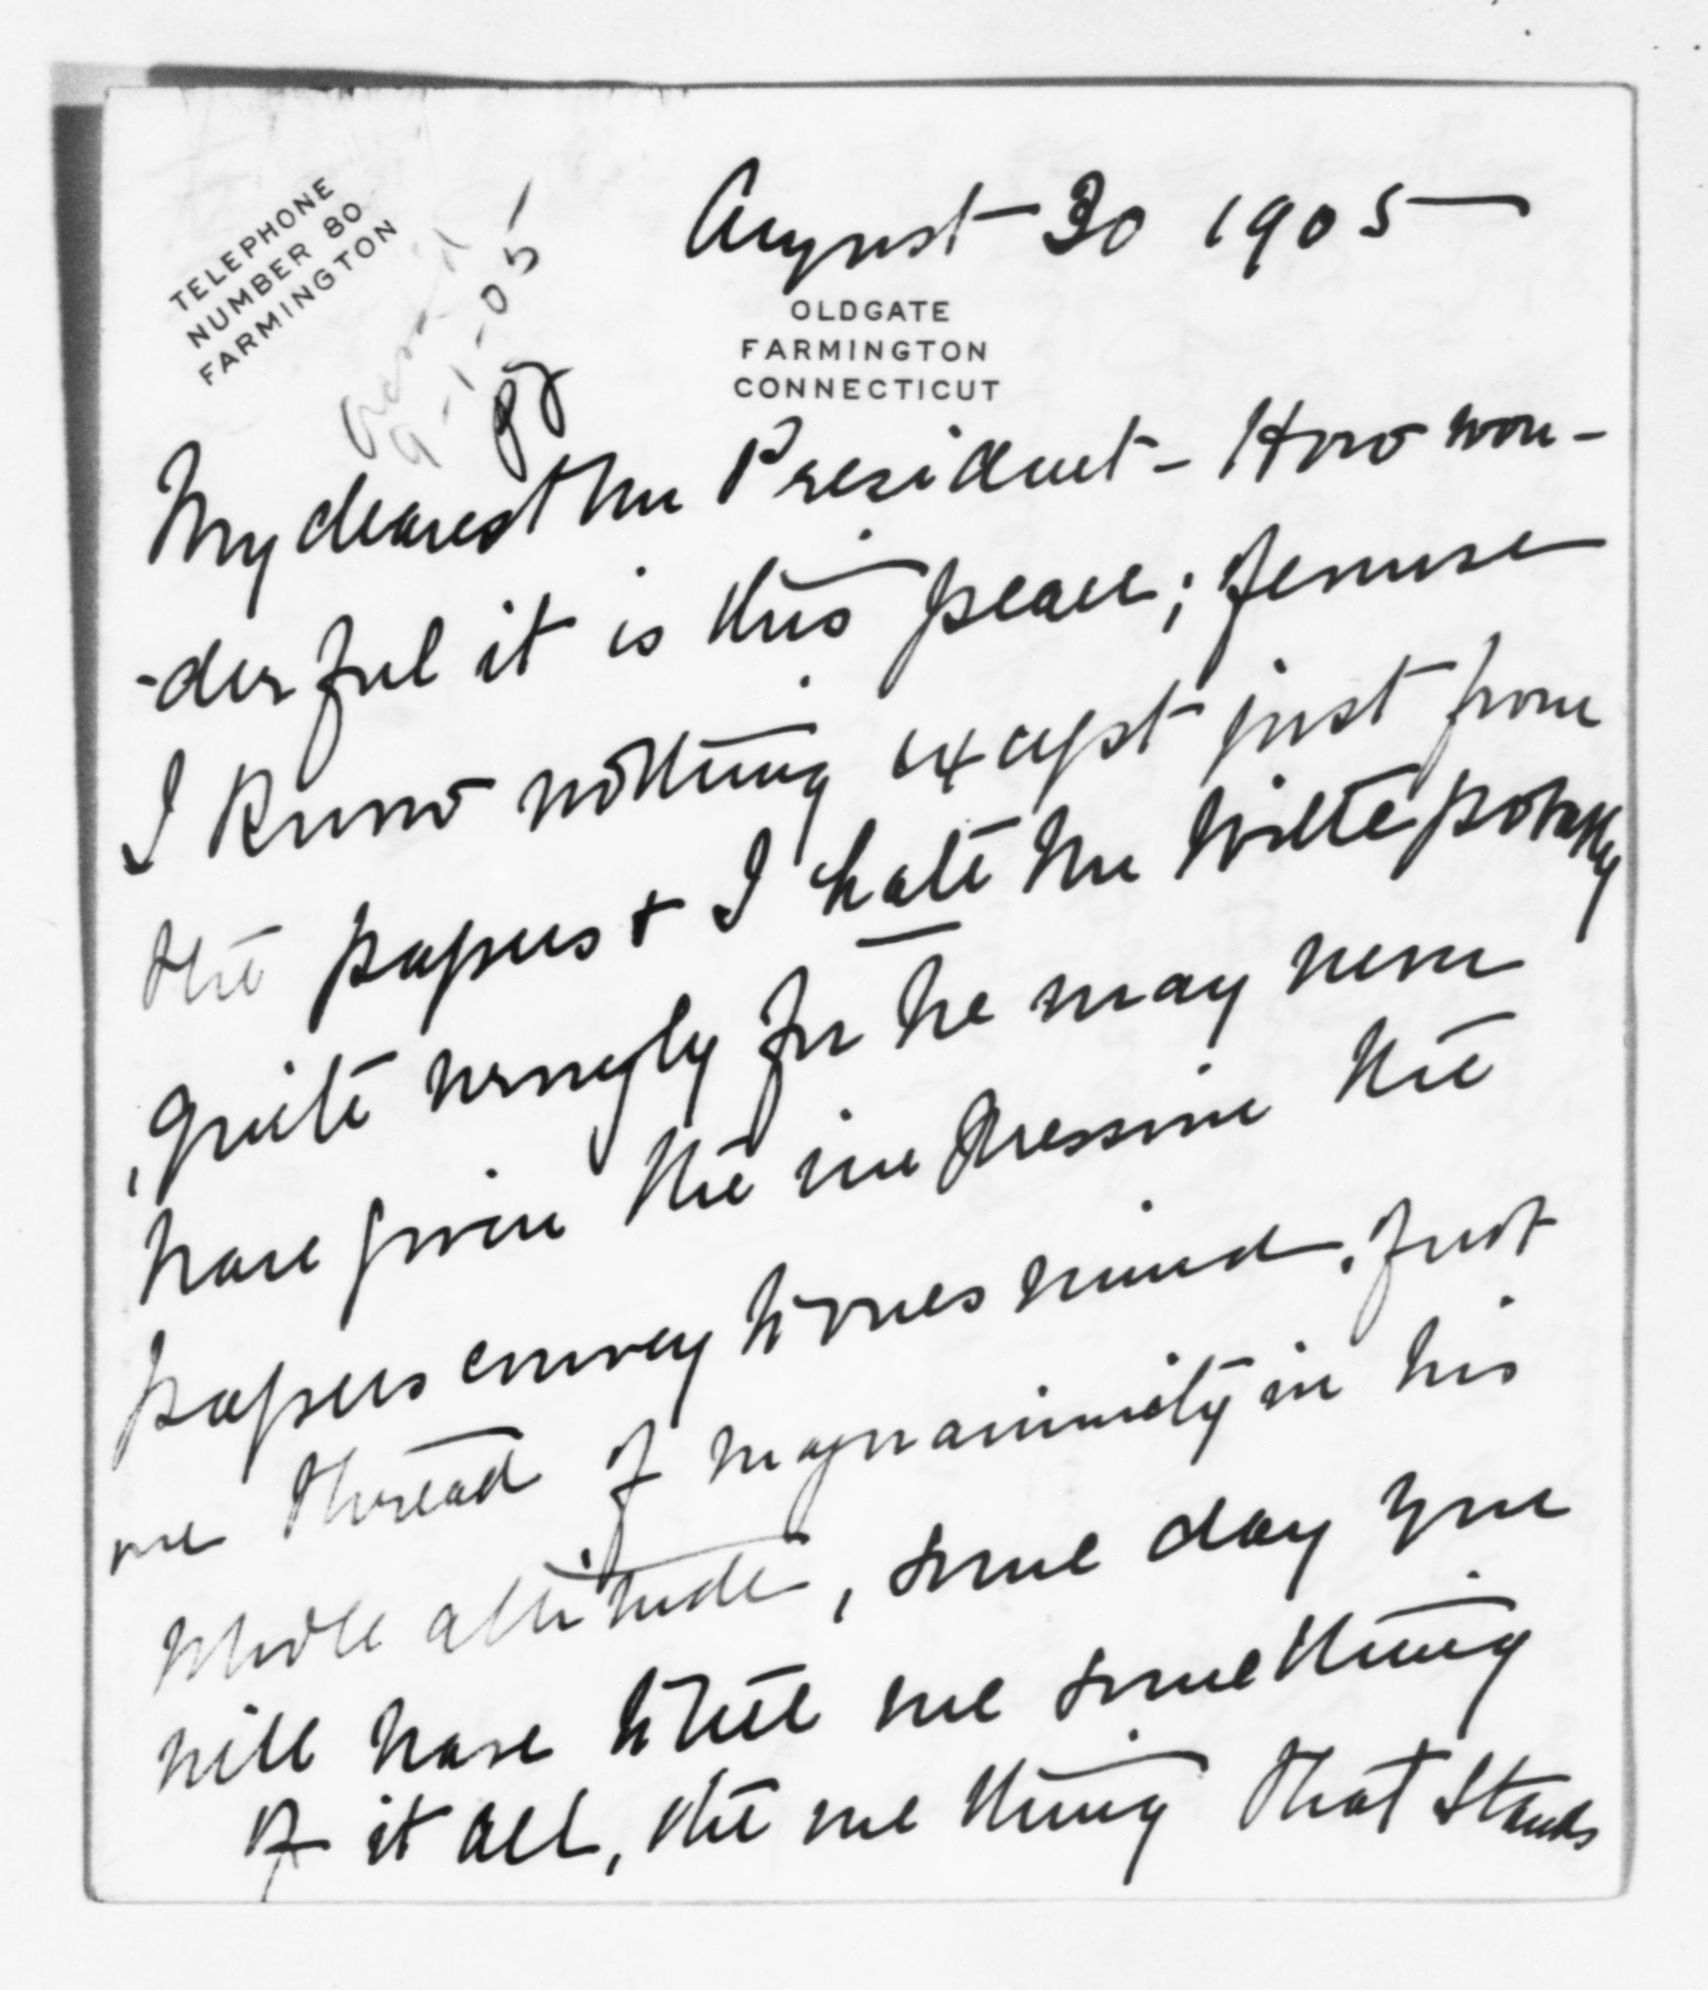 August 30 1905
TELEPHONE
NUMBER 80
FARMINGTON
9-1-05
OLDGATE
FARMINGTON
CONNECTICUT
My dearest Mr President - How won-
-derful it is this peace; of course
I know nothing except just from
the papers & I hate Mr Witte probably
quite wrongly for he may never
have given the impression the
papers convey to ones mind. Just
one thread of magnanimity in his
whole attitude, some day you
will have to tell me something
of it all, the one thing that stands